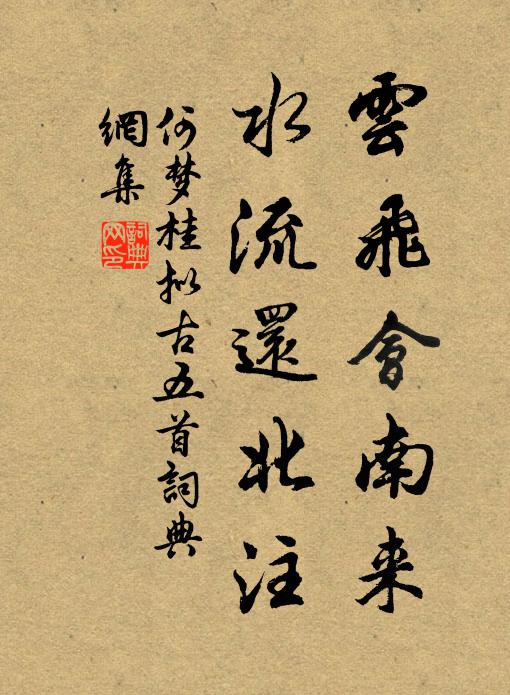 雲飛會南来
水流還北注
何梦桂拟古五首詞典
網集
詞典
网印